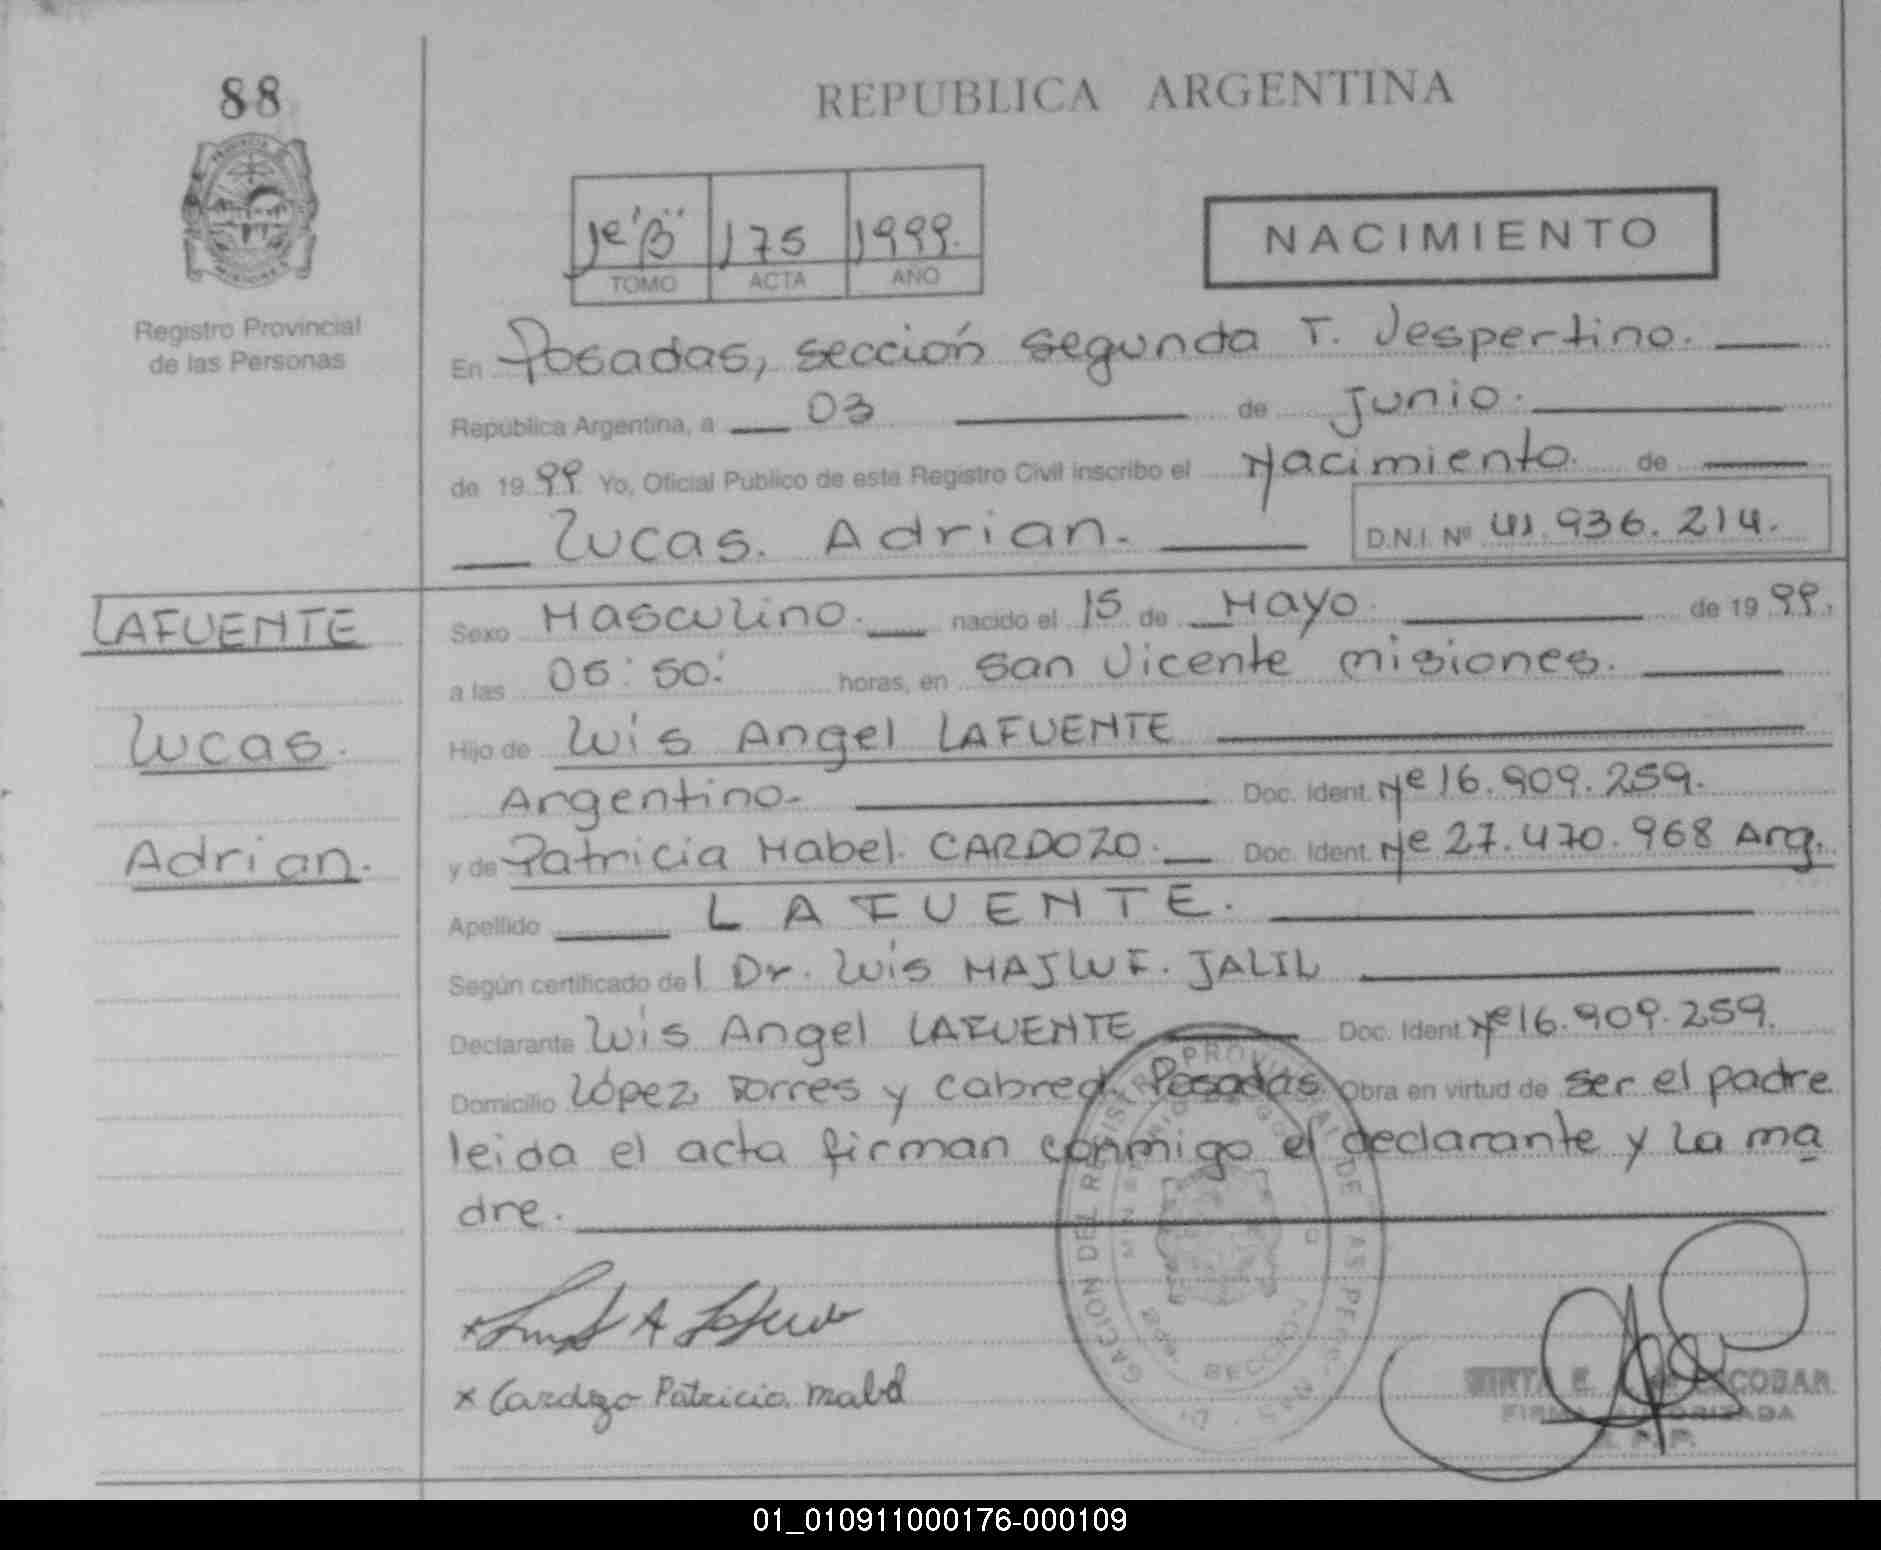 88
REPUBLICA ARGENTINA
1º "B" 175 1999.
TOMO ACTA AÑO
NACIMIENTO
Registro Provincial
de las Personas
En Posadas, sección segunda T. Vespertino.
República Argentina, a 03 de Junio.
de 1999 Yo, Oficial Publico de este Registro Civil inscribo el Nacimiento de
Lucas. Adrian. D.N.I. Nº 41.936.214.
LAFUENTE
Lucas.
Adrian.
Sexo Masculino. nacido el 15 de Mayo. de 1999.
a las 05:50: horas, en San Vicente misiones.
Hijo de Luis Angel LAFUENTE
Argentino. Doc. Ident. Nº 16.909.259.
y de Patricia Mabel. CARDOZO. Doc. Ident. Nº 27.470.968 Arg.
Apellido LAFUENTE.
Según certificado del Dr. Luis MAJLUF. JALIL
Declarante Luis Angel LAFUENTE Doc. Ident. Nº 16.909.259.
Domicilio López Torres y Cabred. Posadas Obra en virtud de ser el padre
leida el acta firman conmigo el declarante y la ma
dre.
x Cardozo Patricia Mabel
ESCOBAR
FIRMA AUTORIZADA
R. P. P.
01_010911000176-000109